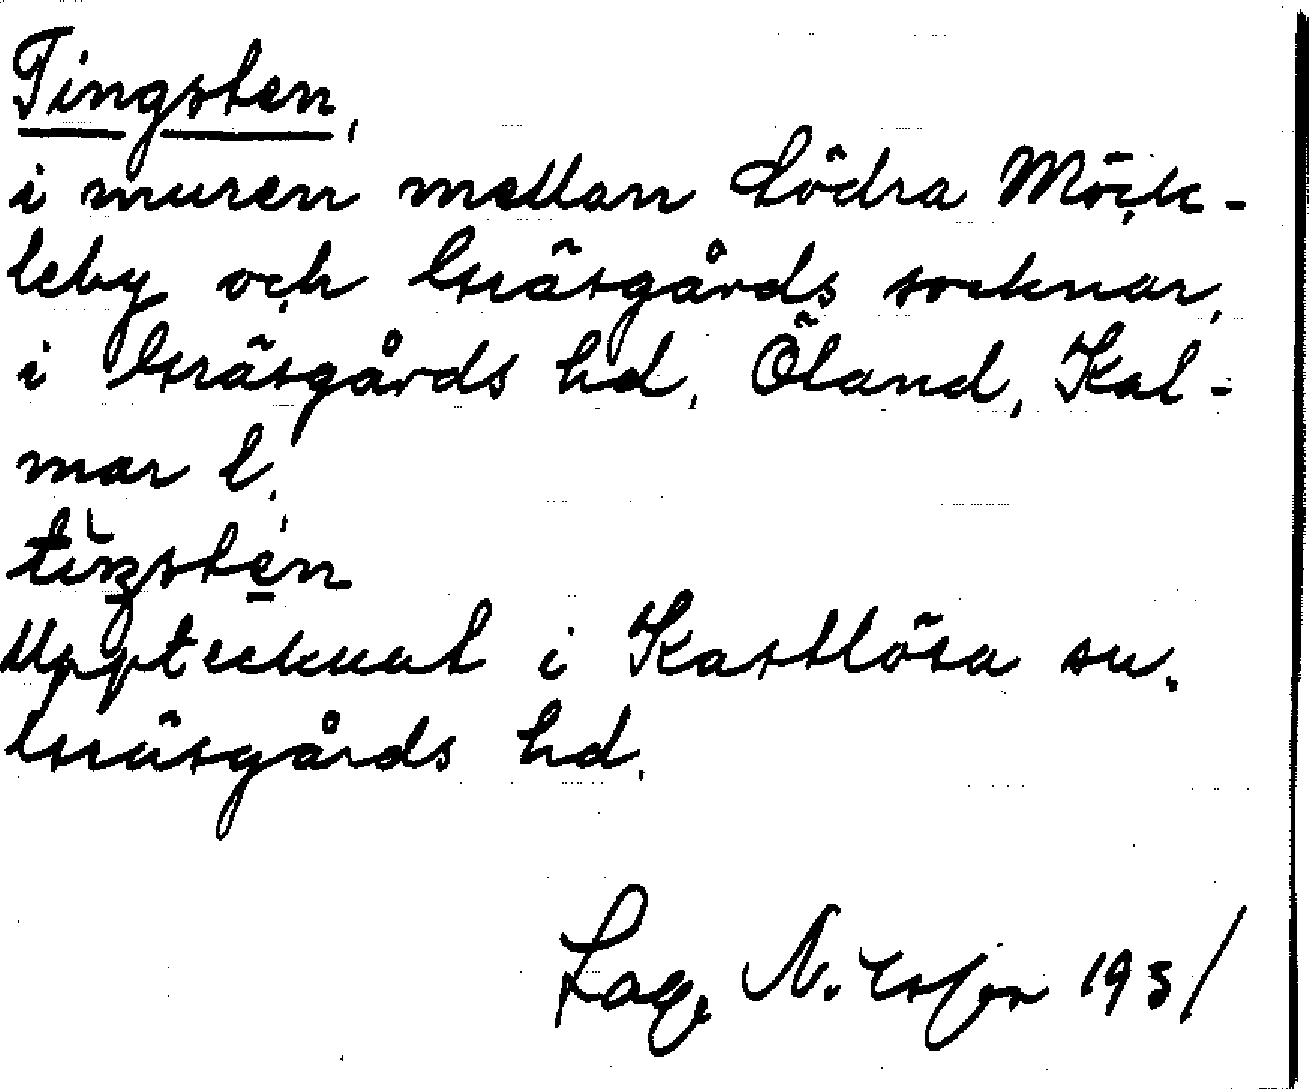 Tingsten,
i muren mellan Södra Möck-
leby och Gräsgårds socknar,
i Gräsgårds hd, Öland, Kal-
mar l.
Upptecknat i Kastlösa sn.
Gräsgårds hd.
1931